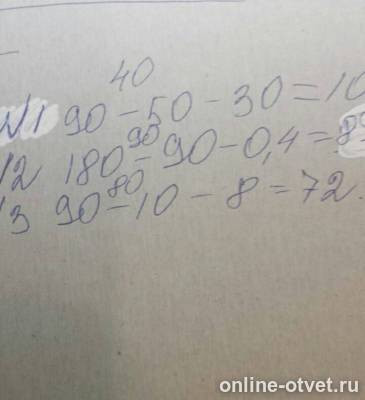 40
№1 90-50-30=10
90
№2 180-90-0,4=89
80
№3 90-10-8=72.
online-otvet.ru